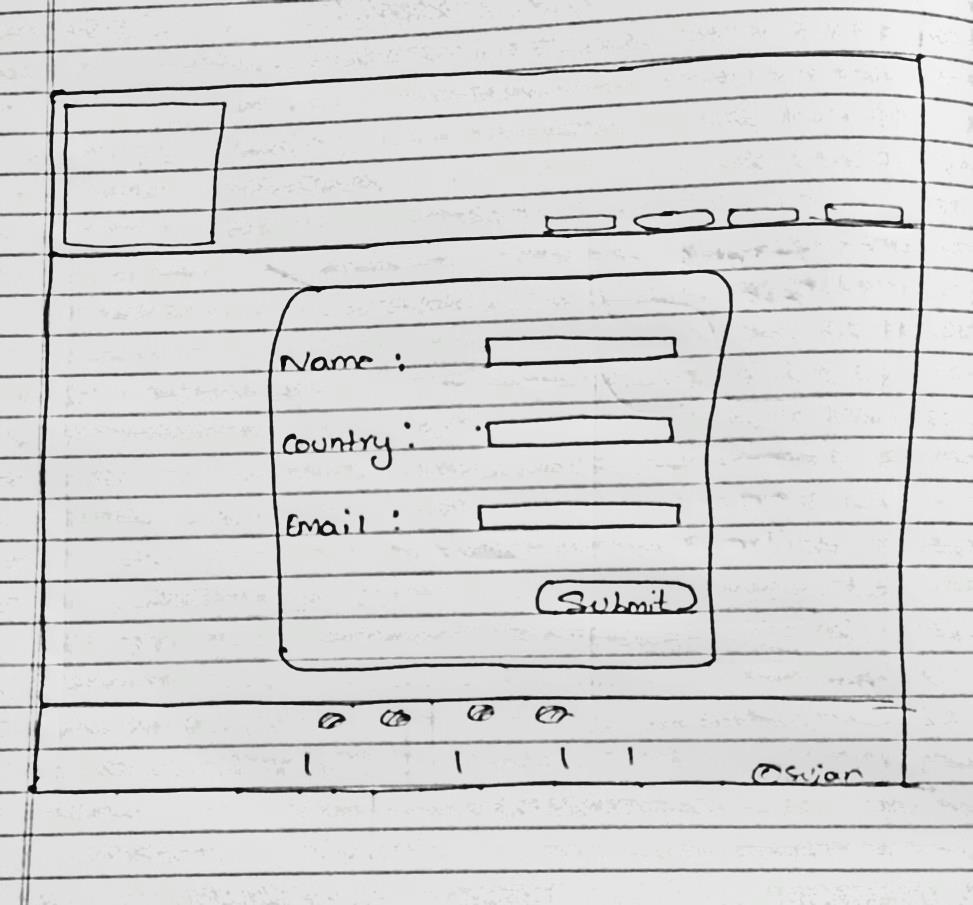 Name :
Country :
Email :
Submit
©sujan